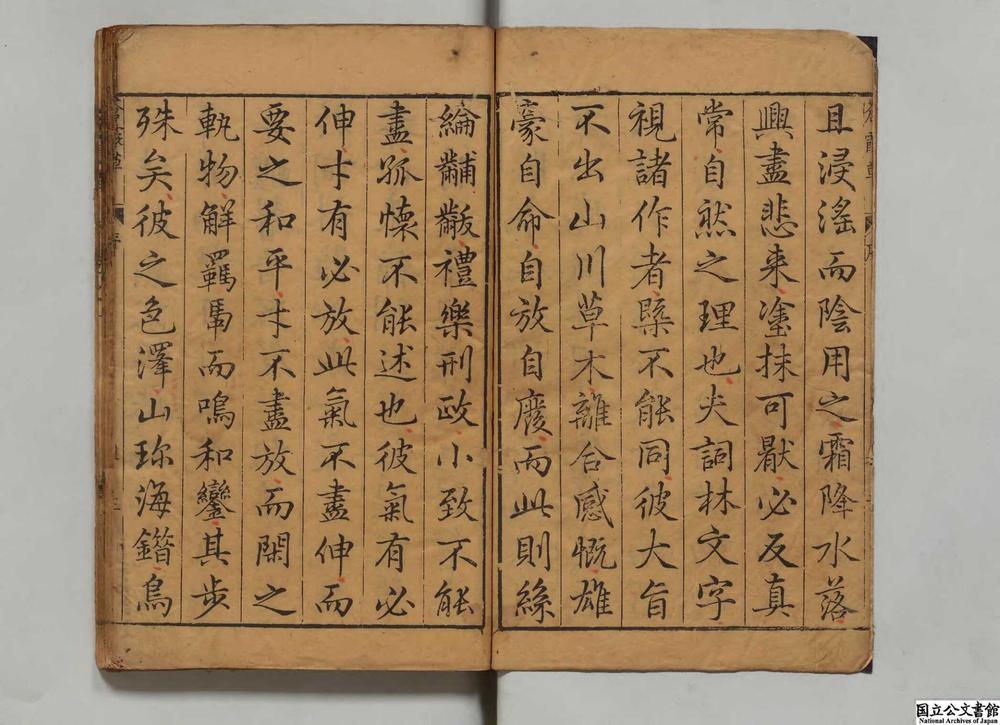 且浸淫而陰用之霜降水落
興盡悲來塗抹可厭必反真
常自然之理也夫詞林文字
視諸作者槩不能同彼大旨
不出山川草木離合感慨雄
豪自命自放自廢而此則絲
綸黼黻禮樂刑政小致不能
盡孤懷不能述也彼氣有必
伸才有必放此氣不盡伸而
要之和平才不盡放而閑之
軌物解羈馬而鳴和鑾其步
殊矣彼之色澤山珍海錯烏
国立公文書館
National Archives of Japan